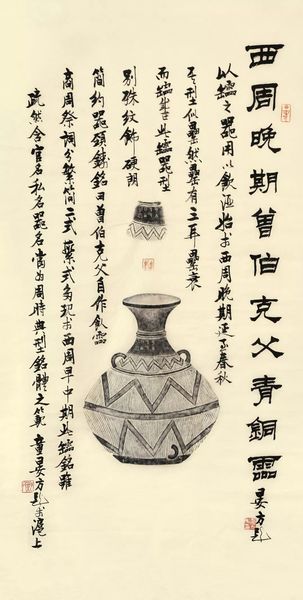 西周晚期曾伯克父青銅霝
晏方記
以鑐之器用以飲酒始于西周晚期延至春秋
其型似罍然罍有三耳罍衰
而鑐生此鑐器型
別殊紋飾硬朗
簡約器頸鑄銘曰曾伯克父自作飲霝
商周祭詞分繁簡二式藥式多現于西周早中期此鑐銘雖
疏然含官名私名器名當為周時典型銘體之範 童晏方記于滬上